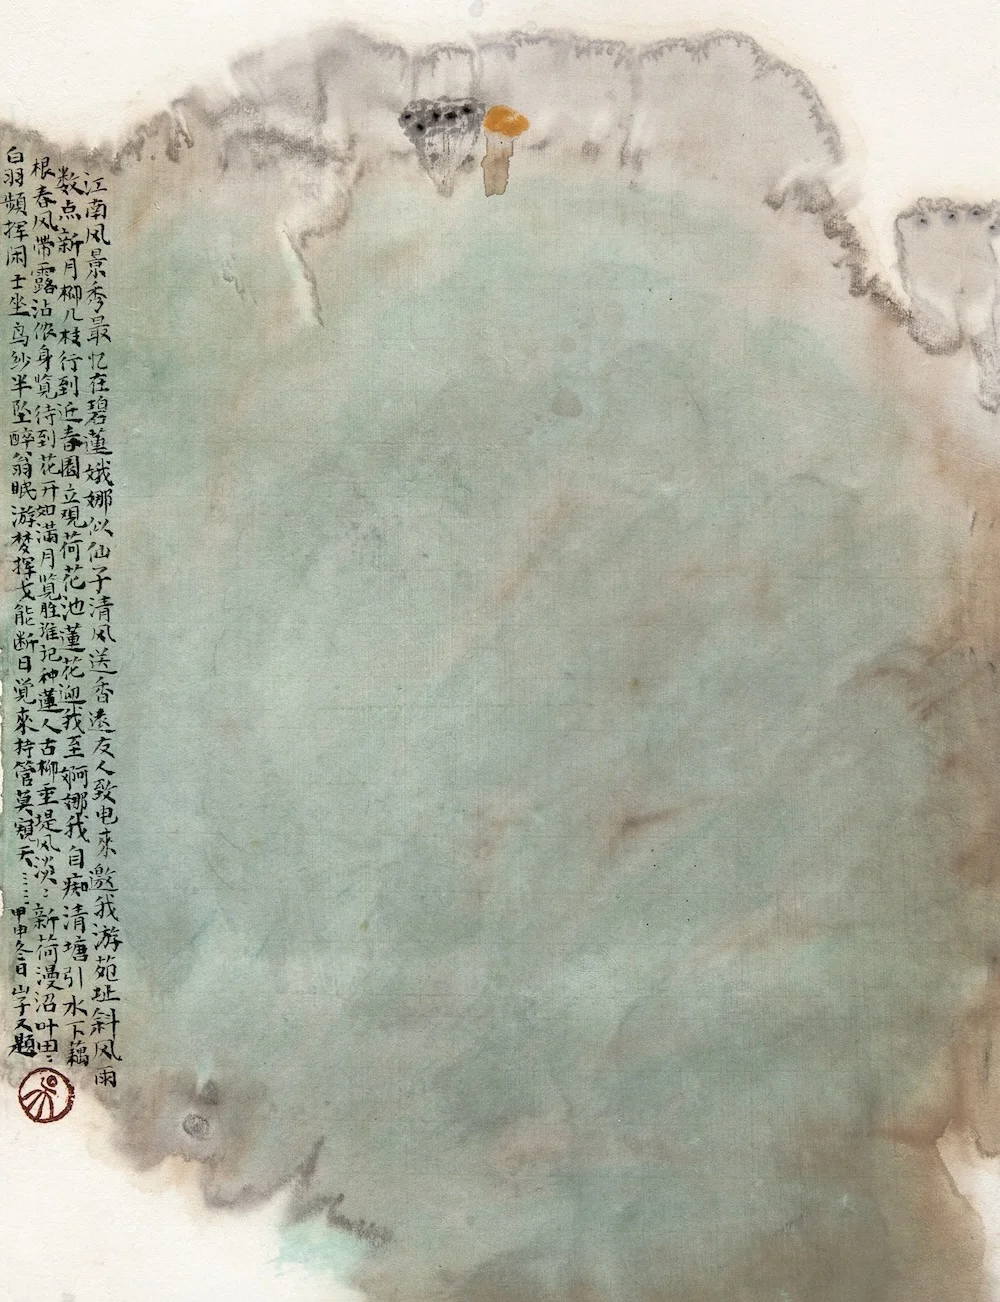 江南风景秀最忆在碧蓮娥娜似仙子清风送香遠友人致电來邀我游苑址斜风雨
数点新月柳几枝行到近春園立觀荷花池蓮花迎我至婀娜我自痴清塘引水下藕
根春风带露沾侬身览待到花开如满月览胜谁记种蓮人古柳垂堤风淡〻新荷漫沼叶田〻
白羽頻挥闲士坐乌纱半坠醉翁眠游梦挥戈能断日觉來持管莫窥天…… 甲申冬日山子又题